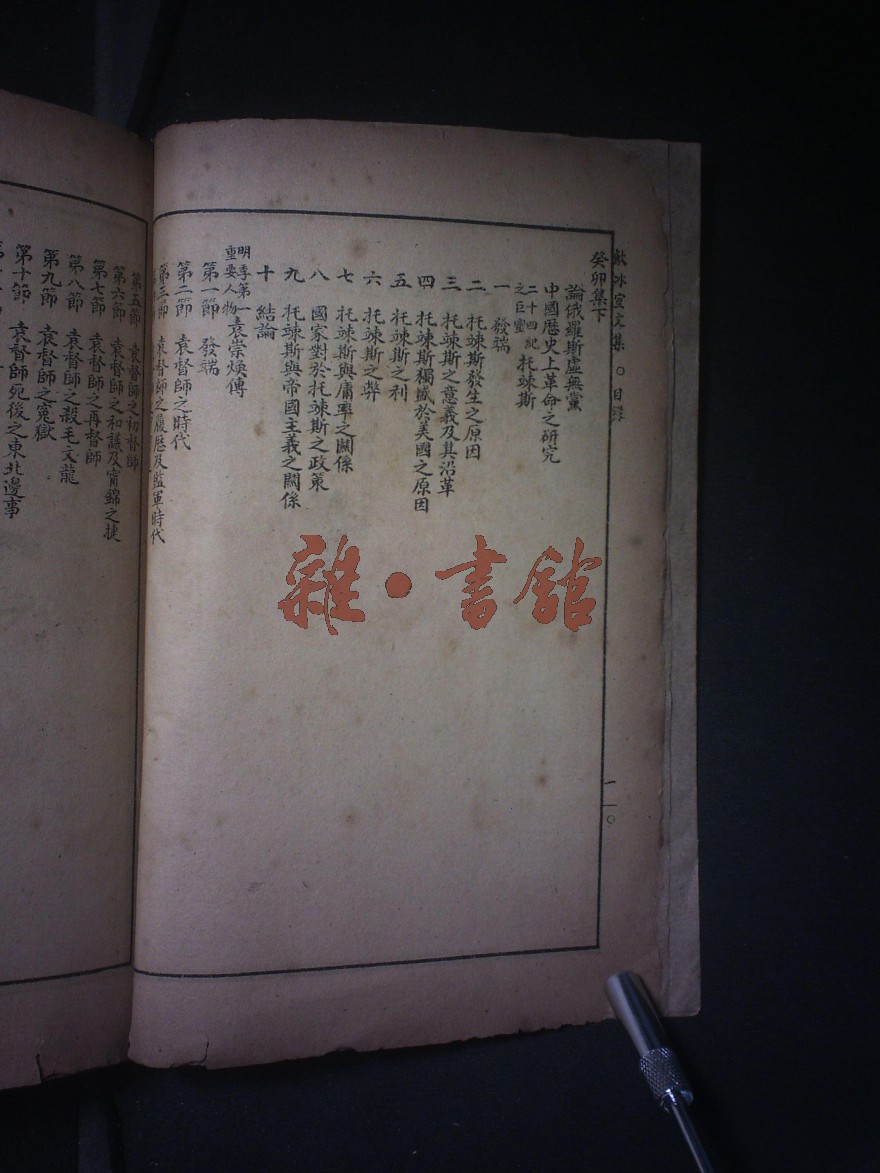 飲冰室文集 ○ 目錄
一一○
癸卯集下
論俄羅斯虛無黨
中國歷史上革命之研究
二十四紀之巨靈托竦斯
一 發端
二 托竦斯發生之原因
三 托竦斯之意義及其沿革
四 托竦斯獨盛於美國之原因
五 托竦斯之利
六 托竦斯之弊
七 托竦斯與庸率之關係
八 國家對於托竦斯之政策
九 托竦斯與帝國主義之關係
十 結論
明季第一重要人物袁崇煥傳
第一節 發端
第二節 袁督師之時代
第三節 袁督師之履歷及監軍時代
第五節 袁督師之初督師
第六節 袁督師之和議及甯錦之捷
第七節 袁督師之再督師
第八節 袁督師之殺毛文龍
第九節 袁督師之冤獄
第十節 袁督師死後之東北邊事
雜·書館